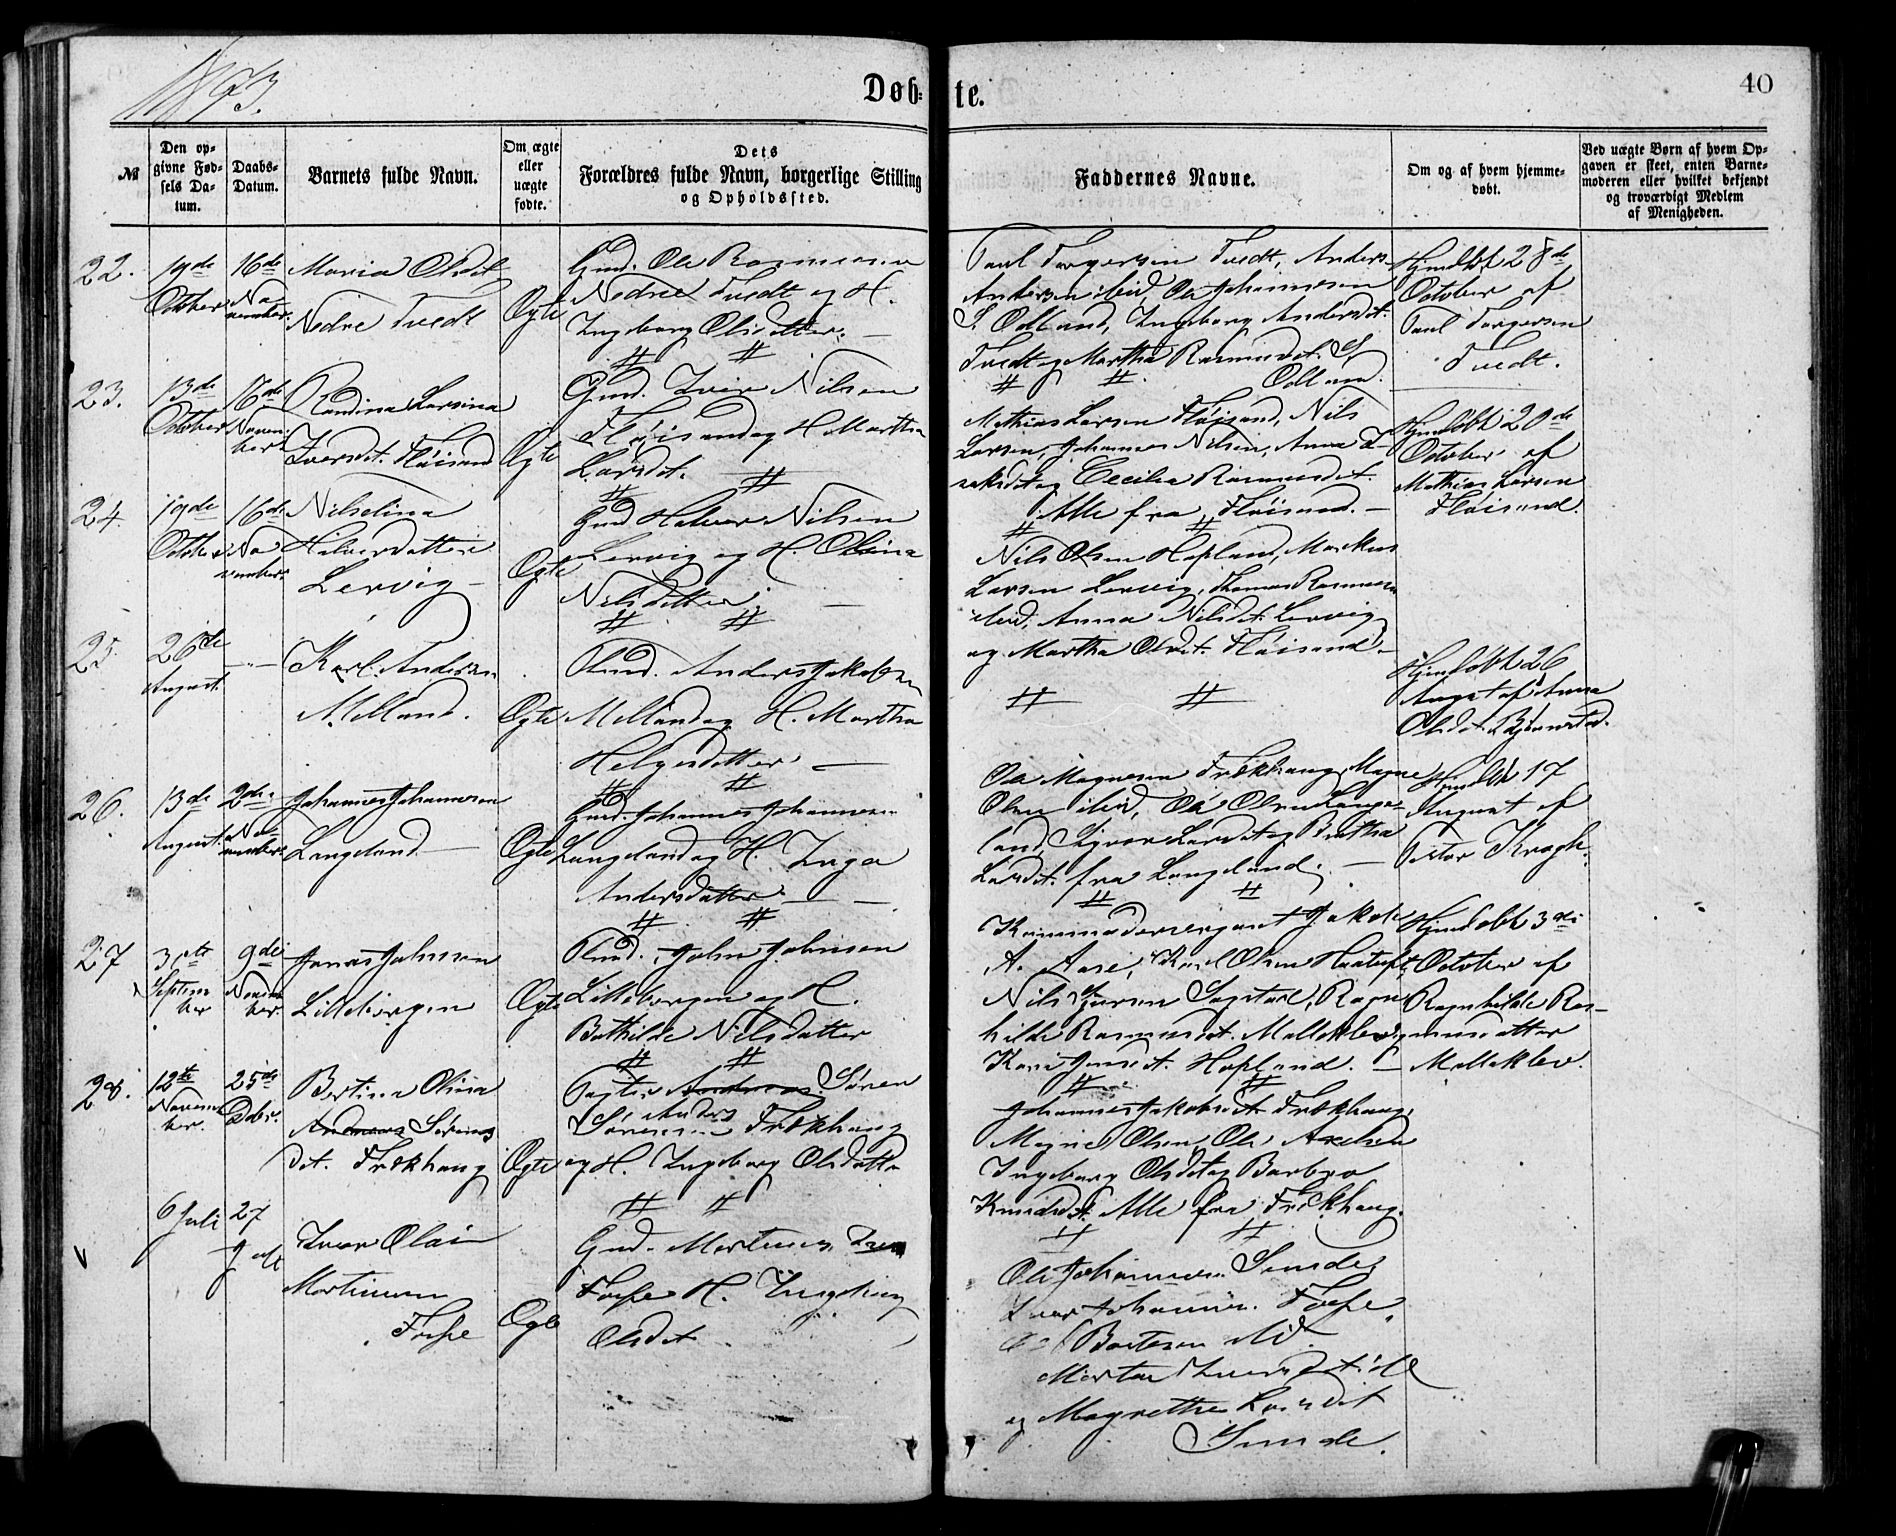 1873.
Døb=
te.
40
№
Den op=
givne Fød=
sels Da=
tum.
Daabs=
Datum.
Barnets fulde Navn.
Om ægte
eller
uægte
fødte.
Dets
Forældres fulde Navn, borgerlige Stilling
og Opholdssted.
Faddernes Navne.
Om og af hvem hjemme=
døbt.
Ved uægte Børn af hvem Op=
gaven er skeet, enten Barne=
moderen eller hvilket bekjendt
og troværdigt Medlem
af Menigheden.
22.
19de
October
16de
No
vember.
Maria Olsdt
Nedre Tvedt
Ægte
Gmd. Ole Rasmussen
Nedre Tvedt og H.
Ingeborg Olsdatter. —
Paul Torgersen Tvedt, Anders
Andersen ibid, Ole Johannesen
S. Odland, Ingeborg Andersdt.
Tvedt og Martha Rasmusdt. S
Odland.
Hjemdøbt 28de
October af
Paul Torgersen
Tvedt.
23.
13de
October
16de
Novem
ber
Randina Larsina
Iversdt. Fløisand
Ægte
Gmd. Iver Nilsen
Fløisand og H. Martha
Larsdt.
Mathias Larsen Fløisand, Nils
Larsen, Johannes Nilsen, Anna I-
saksdt og Cecilia Rasmusdt.
Alle fra Fløisand. —
Hjemdøbt 20de
October af
Mathias Larsen
Fløisand.
24.
19de
October
16de
No
vember
Nilselina
Halvorsdatter
Lervig —
Ægte
Gmd Halvor Nilsen
Lervig og H. Olina
Nilsdatter. —
Nils Olsen Hopland, Markus
Larsen Lervig, Thomas Rasmussen
ibid, Anna Nilsdt. Lervig
og Martha Olsdt. Fløisand. —
25.
26de
August.
— " —
Karl Andersen
Melland.
Ægte
Anders Jakobsen
Melland og H. Martha
Helgesdatter —
Hjemdøbt 26
August af Anna
Olsdt.
26.
13de
August.
2de
No
vember
Johannes Johannesen
Langeland —
Ægte
Gmd. Johannes Johannesen
Langeland og H. Inga
Andersdatter —
Ole Magnesen Frøkhaug, Magne
Olsen ibid, Ole Olsen Lange-
land, Larsdt og Brithe
Larsdt. fra Langeland. —
Hjemdøbt 17
August af
Pastor Krogh.
27
3die
Septem
ber
9de
Novem
ber.
Jonas Johnsen
Lillebergen
Ægte
John Johnsen
Lillebergen og H.
Bothilde Nilsdatter
Kommandersergeant Jakob
A. Aase, Karl Olsen Haatuft,
Nils Sjursen Sagstad, Ragn
hilde Rasmusdt. Molleklev og
Kari Jonsdt. Hopland. —
Hjemdøbt 3die
October af
Ragnhilde Ras-
musdatter
Molleklev.
28.
12te
Novem
ber.
25de
Debr.
Bertina Olina
Andreas Sørens
dt. Frøkhaug
Ægte
Andreas Søren
Anders
Sørensen Frøkhaug
og H. Ingeborg Olsdatter
Johannes Jakobsdt Frøkhaug,
Magne Olsen, Ole Axelsen
Ingeborg Olsdt og Barbro
Knudsdt. Alle fra Frøkhaug.
6 Juli
27
Juli
Iver Olai
Martinsen
Fosse
Ægte
Gmd. Martinus Iver
Fosse H. Ingeborg
Olsdt
Ole Johannesen Sunde,
Iver Johannes. Fosse,
Bertesen ibid.
Marta Iversdt ibid
og Magrethe Larsdt
Sunde.